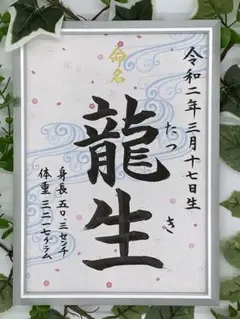 令和二年三月十七日生
たつき
命名
龍生
身長 五〇.三センチ
体重 三二一七グラム